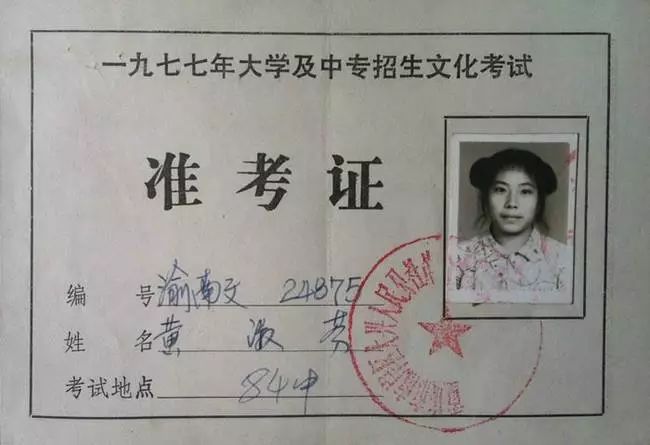 一九七七年大学及中专招生文化考试
准考证
编 号 渝南文 24875
姓 名 黄淑芳
考试地点 84中